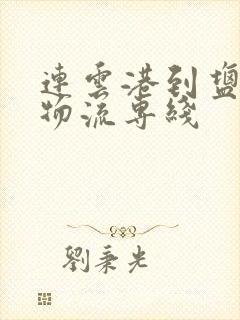 連雲港到鹽
物流專綫
劉秉光